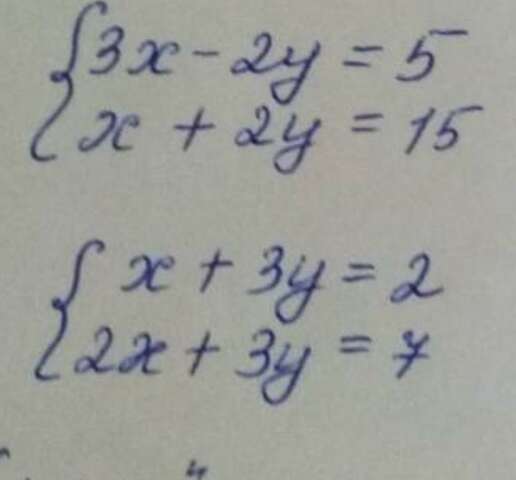 3x - 2y = 5
x + 2y = 15
x + 3y = 2
2x + 3y = 7